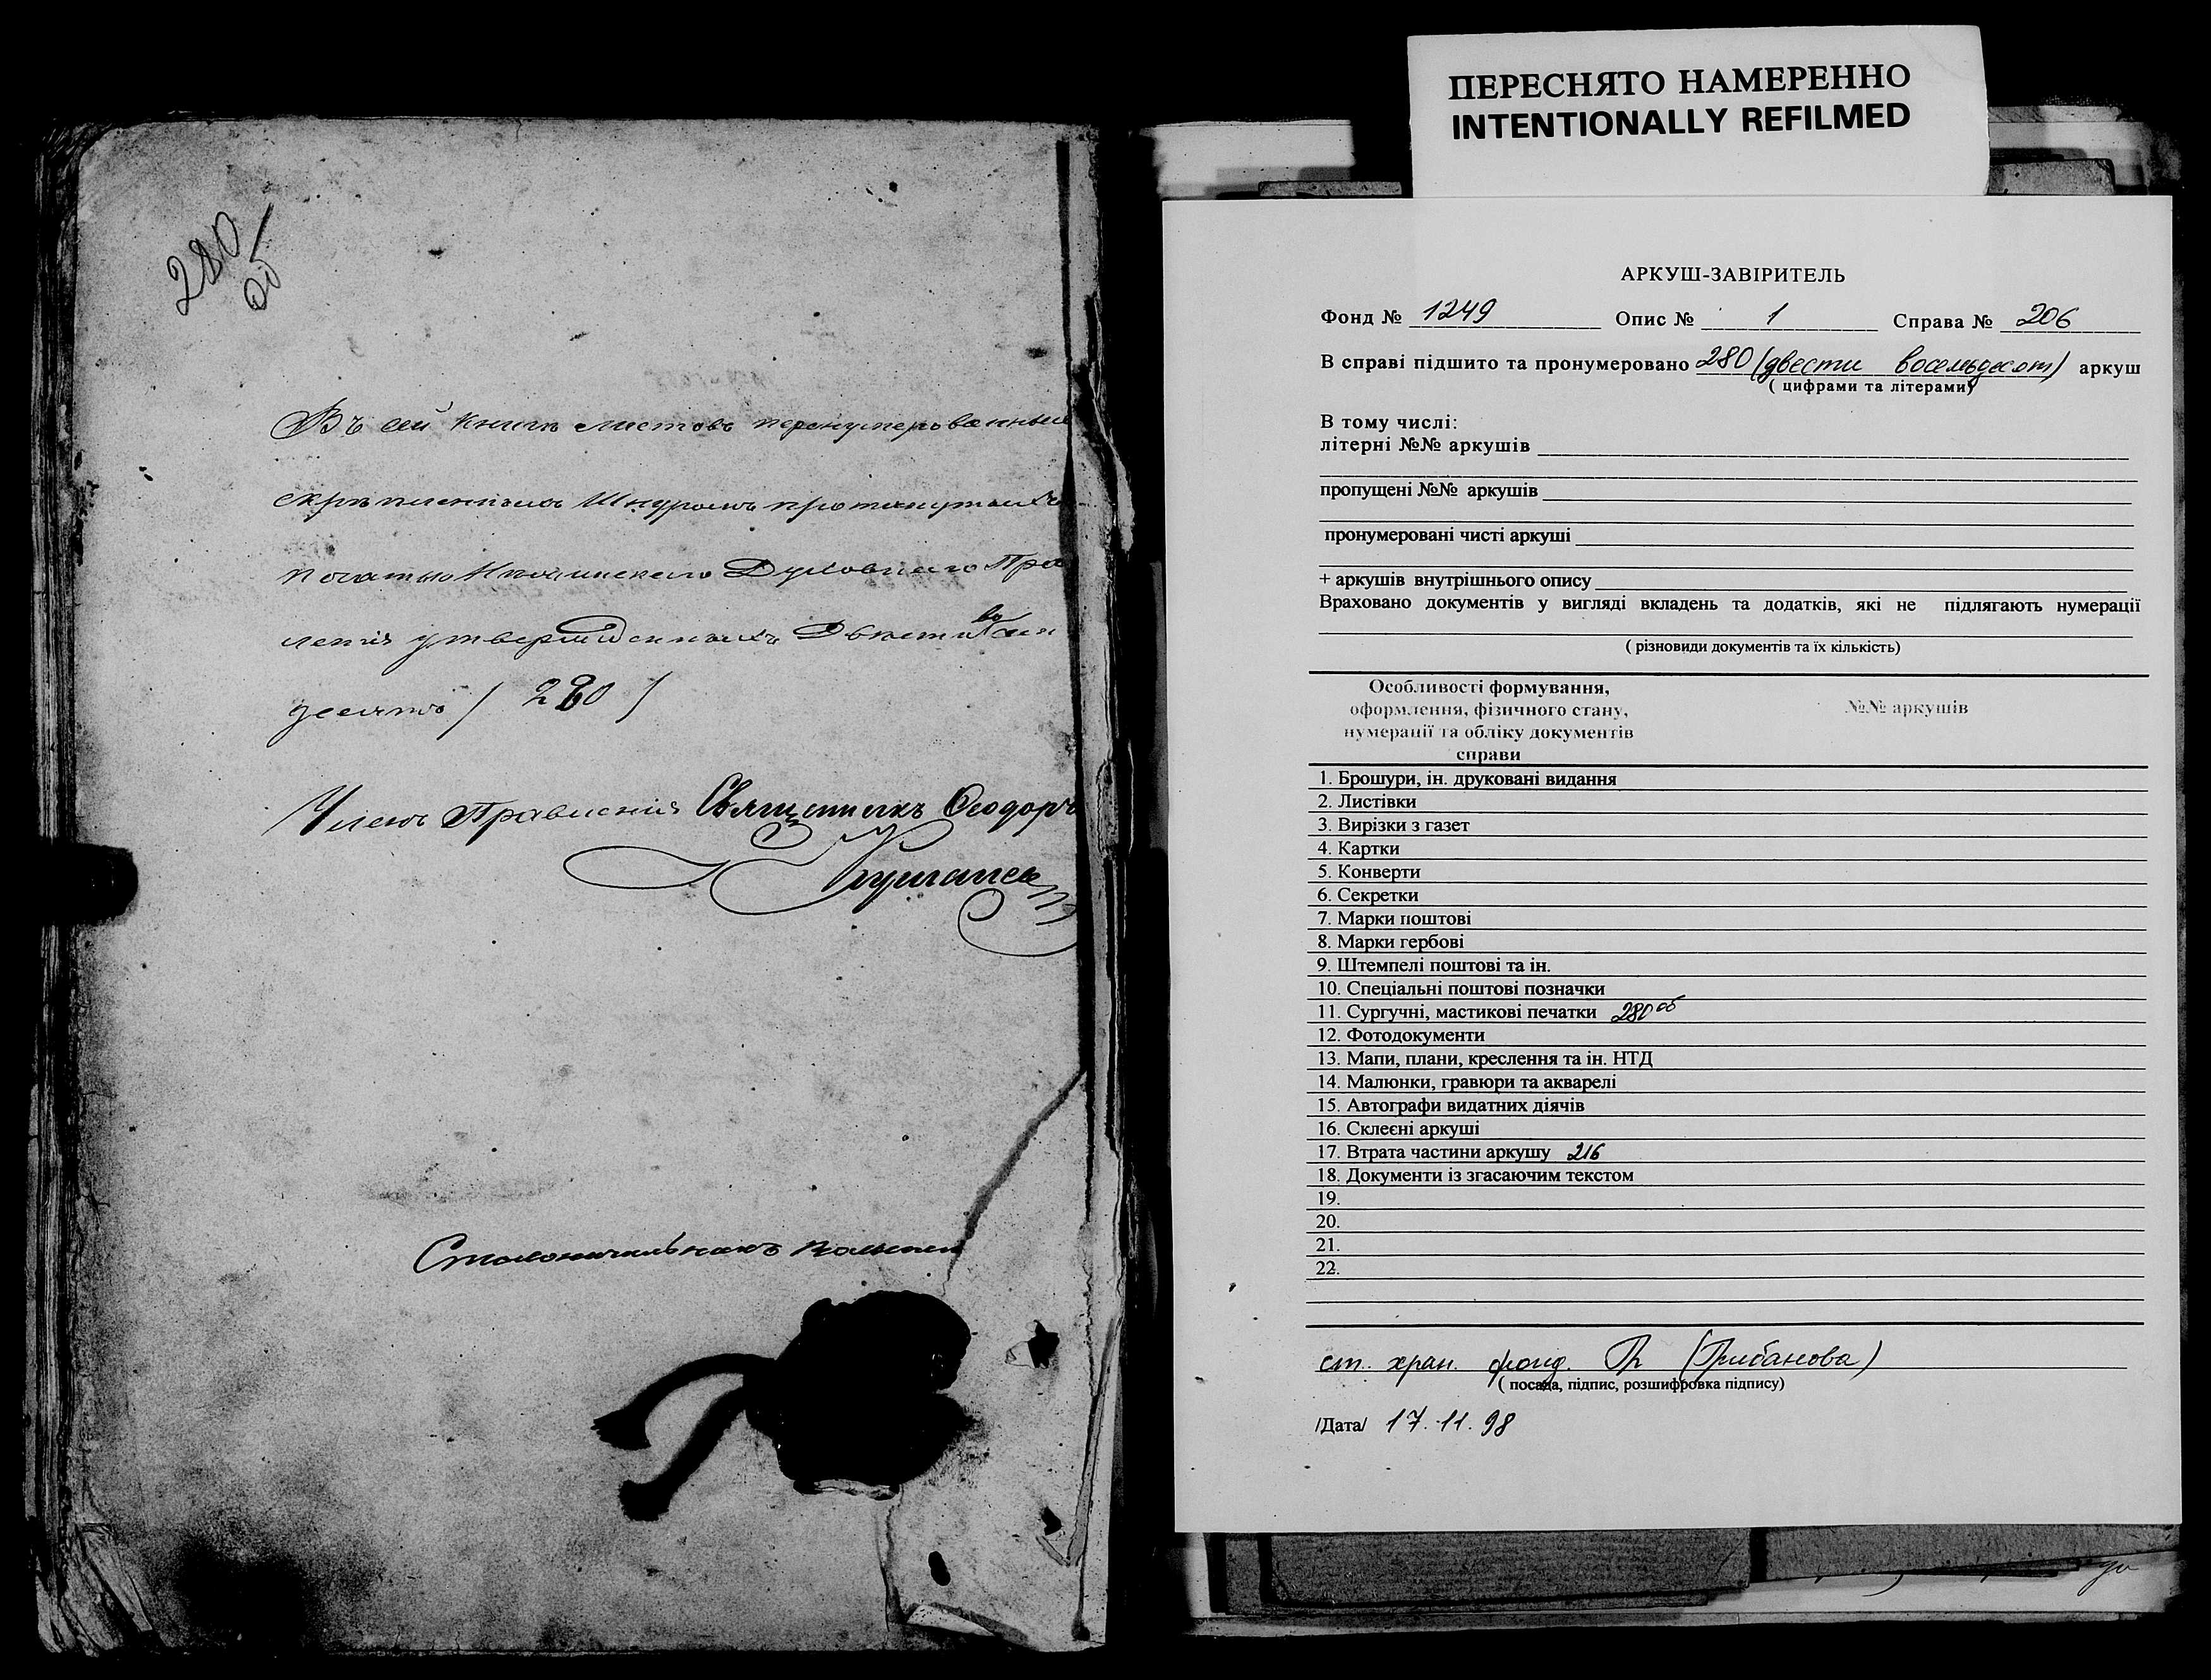 280
об
Въ сей книгѣ листовъ перенумерованныхъ
скрѣпленныхъ шнуромъ протянутыхъ
печатью Духовнаго Пра
ленія утвержденныхъ Двѣсти
десятъ / 280 /
Членъ Правленія Священникъ Ѳеодоръ
Столоначальникъ
ПЕРЕСНЯТО НАМЕРЕННО
INTENTIONALLY REFILMED
АРКУШ-ЗАВІРИТЕЛЬ
Фонд № 1249 Опис № 1 Справа № 206
В справі підшито та пронумеровано 280 (двести восемьдесят) аркуш
( цифрами та літерами)
В тому числі:
літерні №№ аркушів
пропущені №№ аркушів
пронумеровані чисті аркуші
+ аркушів внутрішнього опису
Враховано документів у вигляді вкладень та додатків, які не підлягають нумерації
( різновиди документів та їх кількість)
Особливості формування, оформлення, фізичного стану, нумерації та обліку документів справи
№№ аркушів
1. Брошури, ін. друковані видання
2. Листівки
3. Вирізки з газет
4. Картки
5. Конверти
6. Секретки
7. Марки поштові
8. Марки гербові
9. Штемпелі поштові та ін.
10. Спеціальні поштові позначки
11. Сургучні, мастикові печатки 280 об
12. Фотодокументи
13. Мапи, плани, креслення та ін. НТД
14. Малюнки, гравюри та акварелі
15. Автографи видатних діячів
16. Склеєні аркуші
17. Втрата частини аркушу 216
18. Документи із згасаючим текстом
19.
20.
21.
22.
ст. хран. фонд. (Грибанова)
( посада, підпис, розшифровка підпису)
/Дата/ 17.11.98